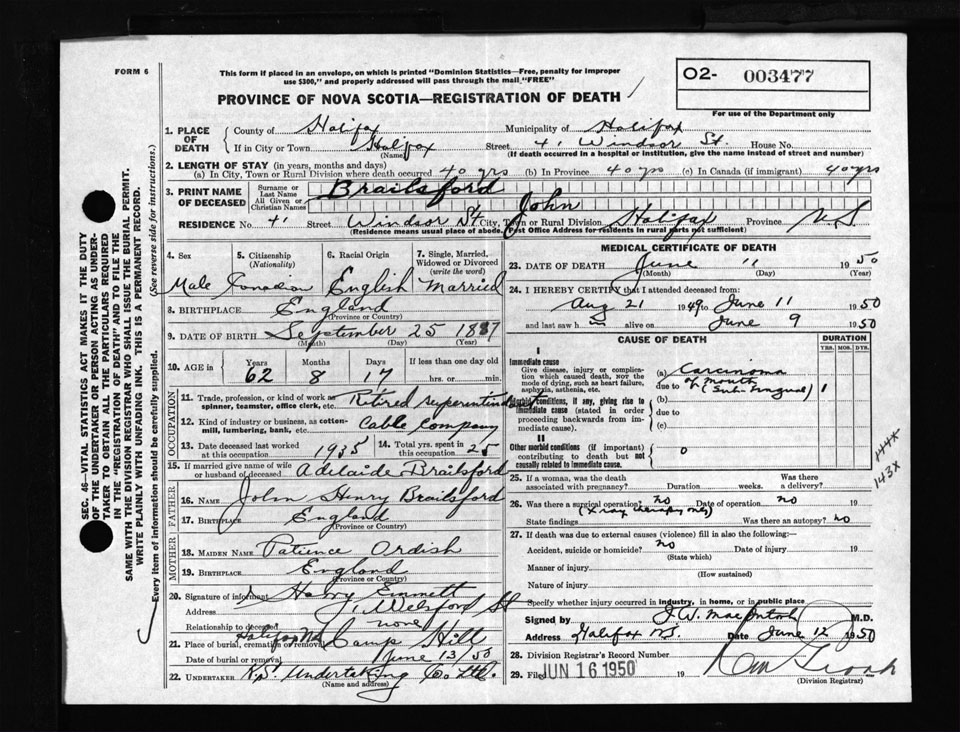 FORM 6
This form if placed in an envelope, on which is printed "Dominion Statistics—Free, penalty for improper
use $300," and properly addressed will pass through the mail "FREE"
O2- 003477
For use of the Department only
PROVINCE OF NOVA SCOTIA—REGISTRATION OF DEATH
SEC. 46—VITAL STATISTICS ACT MAKES IT THE DUTY
OF THE UNDERTAKER OR PERSON ACTING AS UNDERTAKER TO OBTAIN ALL THE PARTICULARS REQUIRED
IN THE "REGISTRATION OF DEATH" AND TO FILE THE
SAME WITH THE DIVISION REGISTRAR WHO SHALL ISSUE THE BURIAL PERMIT.
WRITE PLAINLY WITH UNFADING INK. THIS IS A PERMANENT RECORD.
Every item of information should be carefully supplied. (See reverse side for instructions.)
1. PLACE OF DEATH County of Halifax Municipality of Halifax
If in City or Town Halifax Street 41 Windsor St. House No.
(Name) (If death occurred in a hospital or institution, give the name instead of street and number)
2. LENGTH OF STAY (in years, months and days)
(a) In City, Town or Rural Division where death occurred 40 yrs (b) In Province 40 yrs (c) In Canada (if immigrant) 40 yrs
3. PRINT NAME OF DECEASED Surname or Last Name Brailsford
All Given or Christian Names John
RESIDENCE No. 41 Street Windsor St City, Town or Rural Division Halifax Province N.S.
(Residence means usual place of abode. Post Office Address for residents in rural parts not sufficient)
4. Sex 5. Citizenship (Nationality) 6. Racial Origin 7. Single, Married, Widowed or Divorced (write the word)
Male Canadian English Married
8. BIRTHPLACE England
(Province or Country)
9. DATE OF BIRTH September 25 1887
(Month) (Day) (Year)
10. AGE in Years Months Days If less than one day old
62 8 17 hrs. or min.
OCCUPATION
11. Trade, profession, or kind of work as spinner, teamster, office clerk, etc. Retired Superintendent
12. Kind of industry or business, as cotton-mill, lumbering, bank, etc. Cable Company
13. Date deceased last worked at this occupation 1935 14. Total yrs. spent in this occupation 25
15. If married give name of wife or husband of deceased Adelaide Brailsford
FATHER
16. Name John Henry Brailsford
17. Birthplace England
(Province or Country)
MOTHER
18. MAIDEN NAME Patience Ordish
19. BIRTHPLACE England
(Province or Country)
20. Signature of informant Harry Emmett
Address Welsford St
Relationship to deceased none
21. Place of burial, cremation or removal Halifax NS Camp Hill
Date of burial or removal June 13 50
22. UNDERTAKER N.S. Undertaking Co Ltd.
(Name and address)
MEDICAL CERTIFICATE OF DEATH
23. DATE OF DEATH June 11 1950
(Month) (Day) (Year)
24. I HEREBY CERTIFY that I attended deceased from:
Aug 21 1949 to June 11 1950
and last saw h im alive on June 9 1950
CAUSE OF DEATH DURATION
YRS. MOS. DYS.
I
Immediate cause
Give disease, injury or complication which caused death, not the mode of dying, such as heart failure, asphyxia, asthenia, etc.
(a) Carcinoma
due to of mouth
(Sub lingual) 1
Morbid conditions, if any, giving rise to immediate cause (stated in order proceeding backwards from immediate cause).
(b)
due to
(c)
II
Other morbid conditions (if important) contributing to death but not causally related to immediate cause. 0
144x
143x
25. If a woman, was the death associated with pregnancy? Duration weeks. Was there a delivery?
26. Was there a surgical operation? no Date of operation no 19
(X ray therapy only)
State findings Was there an autopsy? no
27. If death was due to external causes (violence) fill in also the following:—
Accident, suicide or homicide? no Date of injury 19
(State which)
Manner of injury
(How sustained)
Nature of injury
Specify whether injury occurred in industry, in home, or in public place
Signed by J.W. MacIntosh M.D.
Address Halifax N.S. Date June 12 1950
28. Division Registrar's Record Number
29. Filed JUN 16 1950 19
(Division Registrar)